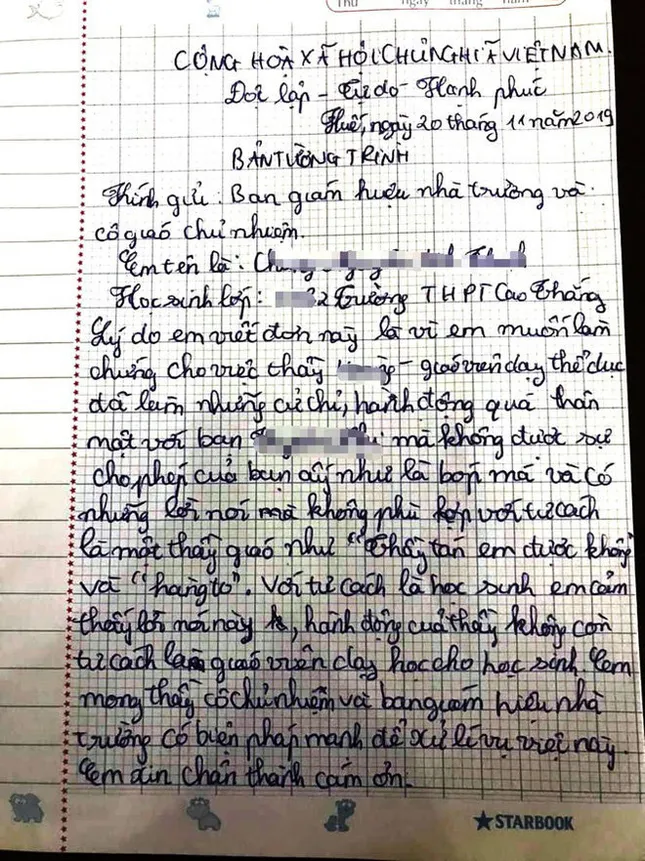 Thứ ngày tháng năm
CỘNG HOÀ XÃ HỘI CHỦ NGHĨA VIỆT NAM.
Độc lập - Tự do - Hạnh phúc
Huế, ngày 20 tháng 11 năm 2019
BẢN TƯỜNG TRÌNH
Kính gửi: Ban giám hiệu nhà trường và
cô giáo chủ nhiệm.
Em tên là:
Học sinh lớp: 2 Trường THPT Cao Thắng
Lý do em viết đơn này là vì em muốn làm
chứng cho việc thầy - giáo viên dạy thể dục
đã làm những cử chỉ, hành động quá thân
mật với bạn mà không được sự
cho phép của bạn ấy như là bóp má và có
những lời nói mà không phù hợp với tư cách
là một thầy giáo như "Thầy tán em được không
và "hàng to". Với tư cách là học sinh em cảm
thấy lời nói này, hành động của thầy không còn
tư cách làm giáo viên dạy học cho học sinh. Em
mong thầy cô chủ nhiệm và ban giám hiệu nhà
trường có biện pháp mạnh để xử lí vụ việc này.
Em xin chân thành cảm ơn.
★STARBOOK